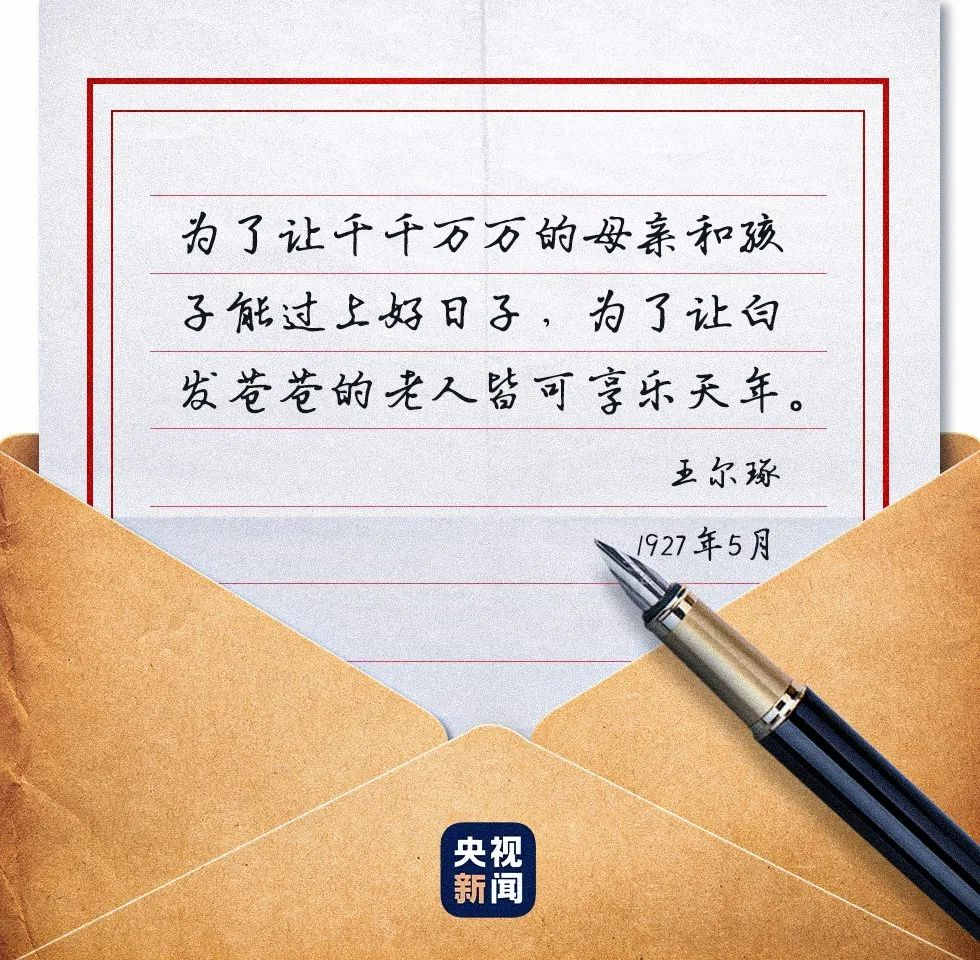 为了让千千万万的母亲和孩
子能过上好日子，为了让白
发苍苍的老人皆可享乐天年。
王尔琢
1927年5月
央视
新闻